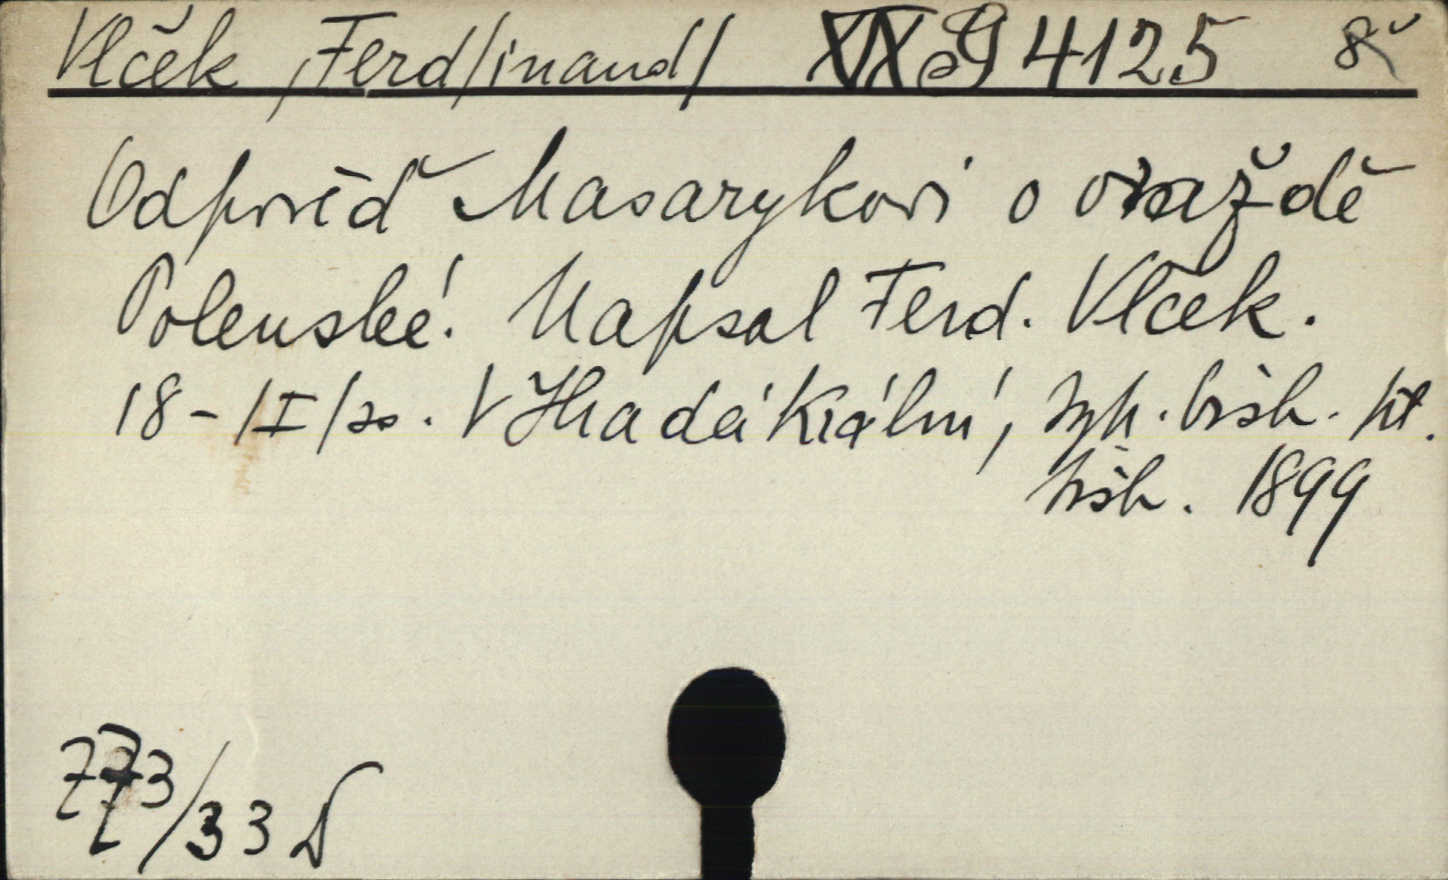 Vlček, Ferd/inand/ XIX 4125 8°
Odpověď Masarykovi o vraždě
Polenské. Napsal Ferd. Vlček.
18-/I/ss. V Hradci Králové, typ. bisk. kt.
bisk. 1899
773/33 D